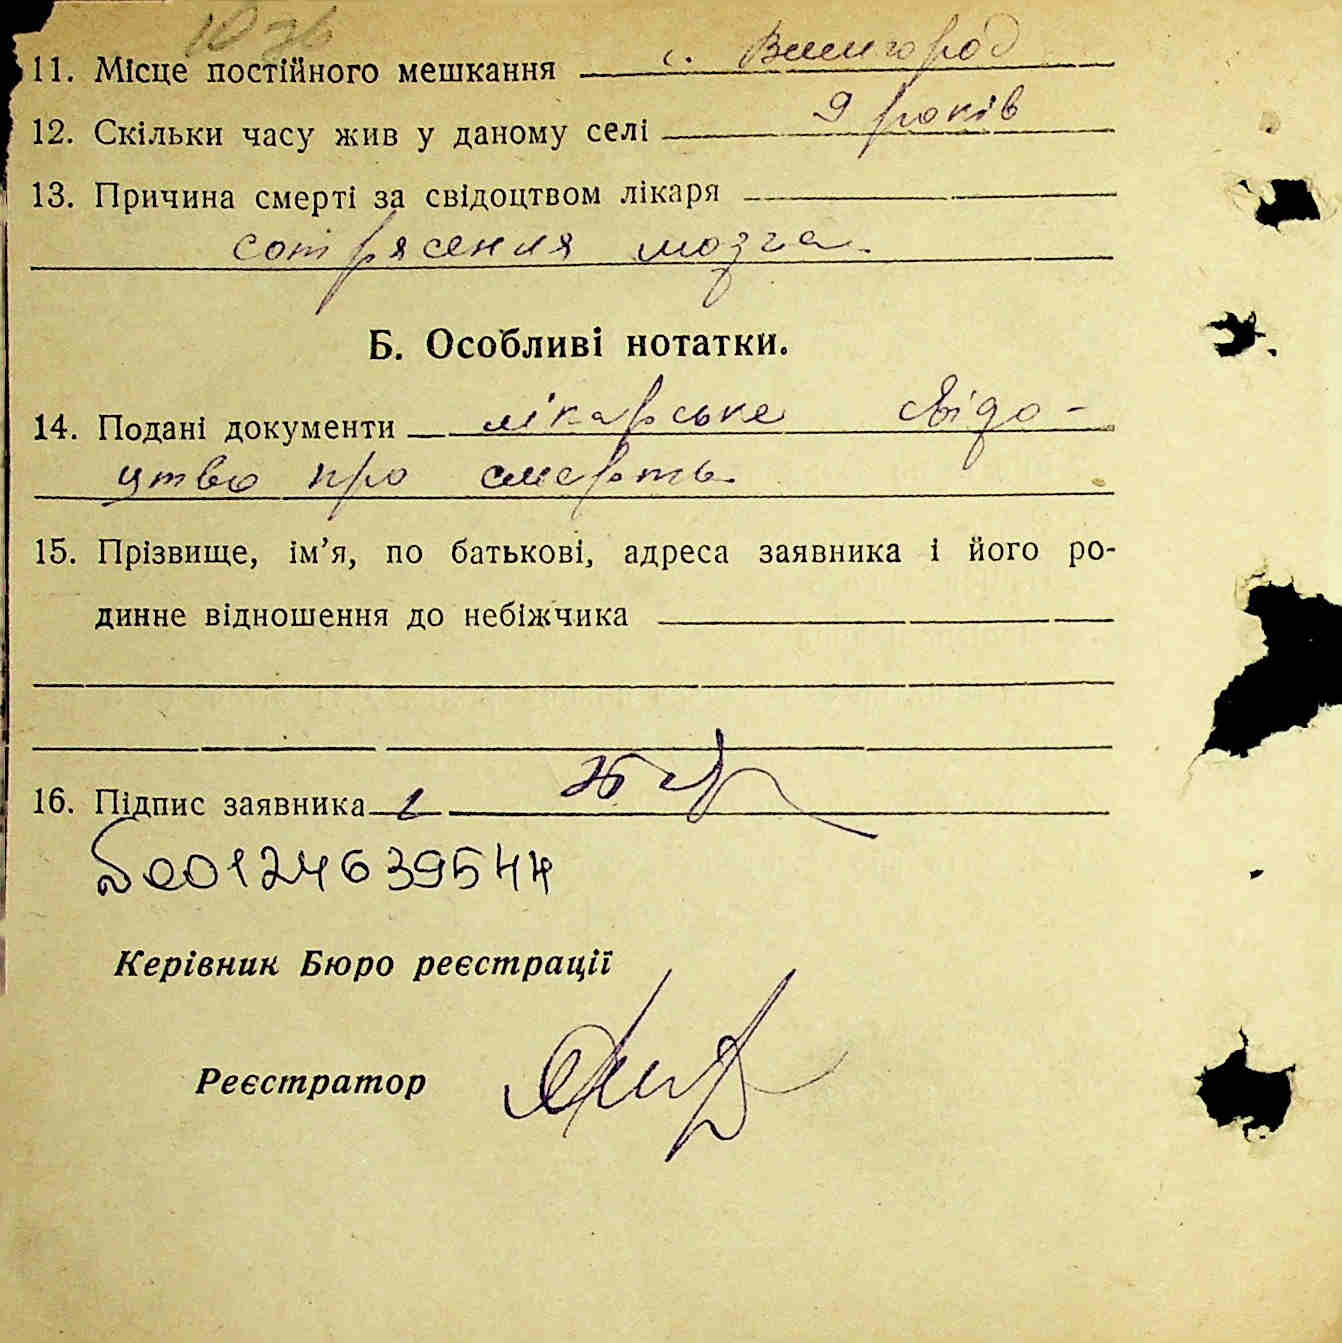 11. Місце постійного мешкання с. Вишгород
12. Скільки часу жив у даному селі 9 років
13. Причина смерті за свідоцтвом лікаря
сотрясения мозга.
Б. Особливі нотатки.
14. Подані документи лікарське свідо-
цтво про смерть.
15. Прізвище, ім’я, по батькові, адреса заявника і його ро-
динне відношення до небіжчика
16. Підпис заявника
00124639544
Керівник Бюро реєстрації
Реєстратор